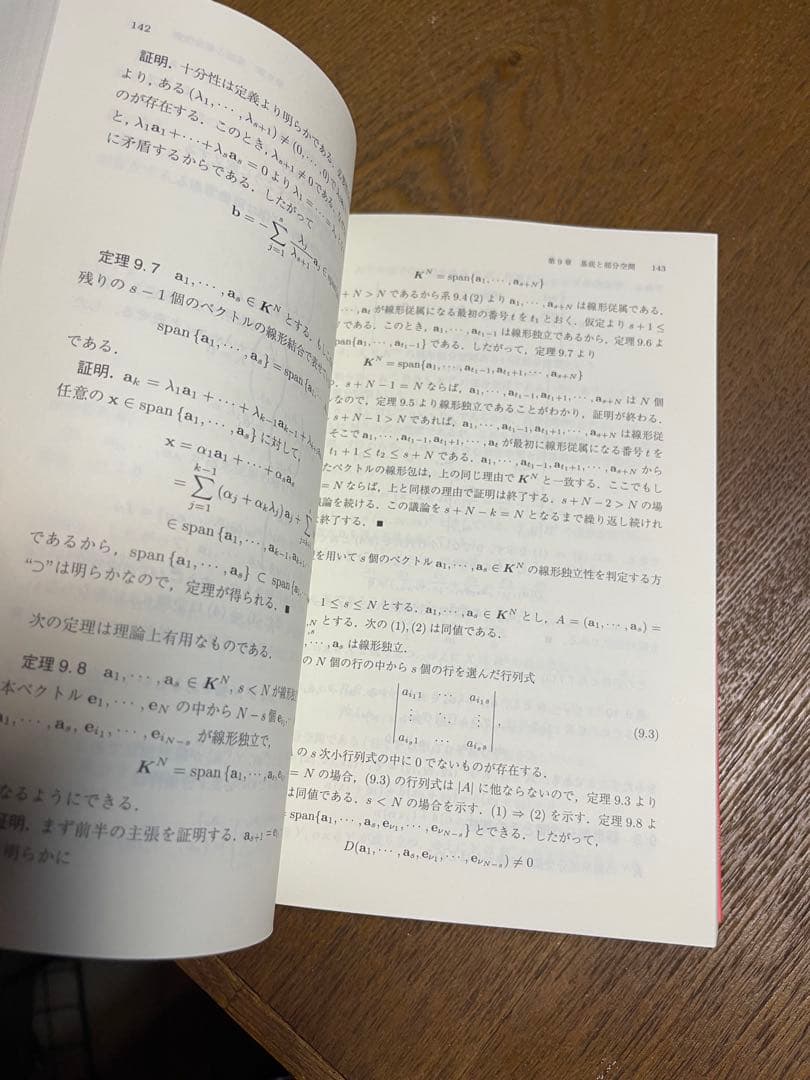 142
証明. 十分性は定義より明らかである.
より, ある (λ₁, ⋯, λₛ₊₁) ≠ (0, ⋯, 0) で
のが存在する. このとき, λₛ₊₁ ≠ 0 である.
と, λ₁a₁ + ⋯ + λₛaₛ = 0 より λ₁ = ⋯ =
に矛盾するからである. したがって
b = − ∑_{j=1}^{s} λⱼ/λₛ₊₁ aⱼ ∈
定理 9.7 a₁, ⋯, aₛ ∈ K^N とする.
残りの s − 1 個のベクトルの線形結合で表せ
span {a₁, ⋯, aₛ} = span {a₁,
である.
証明. aₖ = λ₁a₁ + ⋯ + λₖ₋₁aₖ₋₁ +
任意の x ∈ span {a₁, ⋯, aₛ} に対して,
x = α₁a₁ + ⋯ + αₛaₛ
= ∑_{j=1}^{k−1} (αⱼ + αₖλⱼ)aⱼ +
∈ span {a₁, ⋯, aₖ₋₁, aₖ₊₁,
であるから, span {a₁, ⋯, aₛ} ⊂ span {a₁,
“⊃”は明らかなので, 定理が得られる. ■
次の定理は理論上有用なものである.
定理 9.8 a₁, ⋯, aₛ ∈ K^N, s < N が
本ベクトル e₁, ⋯, e_N の中から N − s 個
a₁, ⋯, aₛ, e_{i₁}, ⋯, e_{i_{N−s}} が線形独立で,
K^N = span {a₁, ⋯, aₛ,
なるようにできる.
証明. まず前半の主張を証明する. aₛ₊₁ =
明らかに
第 9 章 基底と部分空間 143
K^N = span{a₁, ⋯, a_{s+N}}
+ N > N であるから系 9.4 (2) より a₁, ⋯, a_{s+N} は線形従属である.
⋯, a_t が線形従属になる最初の番号 t を t₁ とおく. 仮定より s + 1 ≤
である. このとき, a₁, ⋯, a_{t₁−1} は線形独立であるから, 定理 9.6 よ
span{a₁, ⋯, a_{t₁−1}} である. したがって, 定理 9.7 より
K^N = span{a₁, ⋯, a_{t₁−1}, a_{t₁+1}, ⋯, a_{s+N}}
s + N − 1 = N ならば, a₁, ⋯, a_{t₁−1}, a_{t₁+1}, ⋯, a_{s+N} は N 個
なので, 定理 9.5 より線形独立であることがわかり, 証明が終わる.
s + N − 1 > N であれば, a₁, ⋯, a_{t₁−1}, a_{t₁+1}, ⋯, a_{s+N} は線形従
そこで a₁, ⋯, a_{t₁−1}, a_{t₁+1}, ⋯, a_t が最初に線形従属になる番号 t を
t₁ + 1 ≤ t₂ ≤ s + N である. a₁, ⋯, a_{t₁−1}, a_{t₁+1}, ⋯, a_{s+N} から
たベクトルの線形包は, 上の同じ理由で K^N と一致する. ここでもし
= N ならば, 上と同様の理由で証明は終了する. s + N − 2 > N の場
議論を続ける. この議論を s + N − k = N となるまで繰り返し続けれ
は終了する. ■
を用いて s 個のベクトル a₁, ⋯, aₛ ∈ K^N の線形独立性を判定する方
1 ≤ s ≤ N とする. a₁, ⋯, aₛ ∈ K^N とし, A = (a₁, ⋯, aₛ) =
とする. 次の (1), (2) は同値である.
⋯, aₛ は線形独立.
の N 個の行の中から s 個の行を選んだ行列式
| a_{i₁1} ⋯ a_{i₁s} |
| ⋮ ⋮ |, (9.3)
| a_{iₛ1} ⋯ a_{iₛs} |
の s 次小行列式の中に 0 でないものが存在する.
= N の場合, (9.3) の行列式は |A| に他ならないので, 定理 9.3 より
は同値である. s < N の場合を示す. (1) ⇒ (2) を示す. 定理 9.8 よ
span{a₁, ⋯, aₛ, e_{ν₁}, ⋯, e_{ν_{N−s}}} とできる. したがって,
D(a₁, ⋯, aₛ, e_{ν₁}, ⋯, e_{ν_{N−s}}) ≠ 0